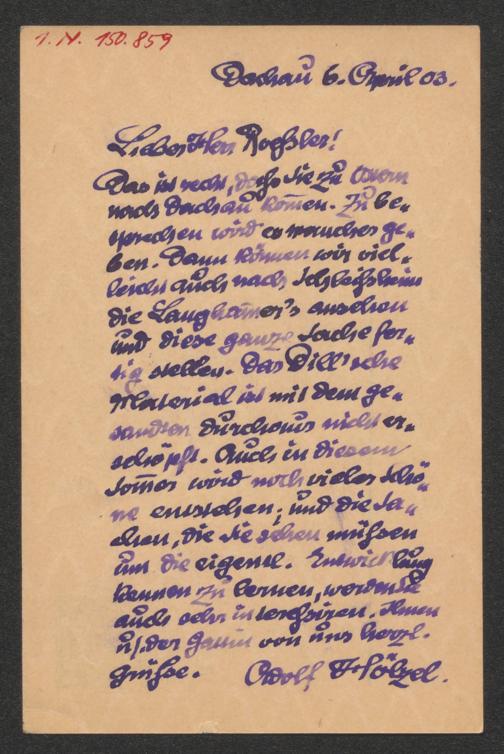 I. N. 150.859
Dachau 6. April 03.
Lieber Herr Roeßler!
Das ist recht, daß Sie zu Ostern
nach Dachau kom̄en. Zu be-
sprechen wird es manches ge-
ben. Dann können wir viel-
leicht auch nach Schleißheim
die Langham̄er's ansehen
und diese ganze Sache fer-
tig stellen. Das Dill'sche
Material ist mit dem ge-
sandten durchaus nicht er-
schöpft. Auch in diesem
Som̄er wird noch vieles Schö-
ne entstehen; und die Sa-
chen, die Sie sehen müßen
um die eigentl. Entwicklung
kennen zu lernen, werden Sie
auch sehr interessiren. Ihnen
u. der von uns herzl.
Grüße. Adolf Hölzel.